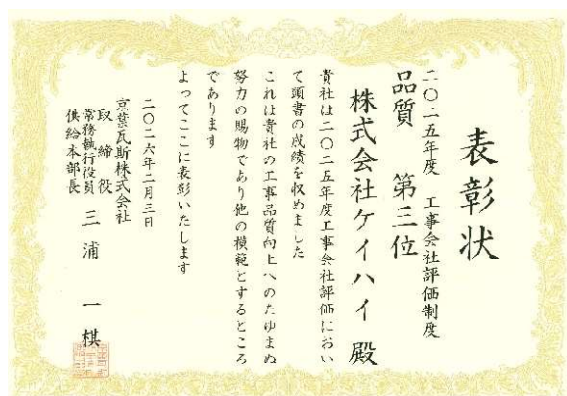 表彰状
二〇二五年度　工事会社評価制度
品質　第三位
株式会社ケイハイ　殿
貴社は二〇二五年度工事会社評価におい
て頭書の成績を収めました
これは貴社の工事品質向上へのたゆまぬ
努力の賜物であり他の模範とするところ
であります
よってここに表彰いたします
二〇二六年二月三日
京葉瓦斯株式会社
取締役
常務執行役員
供給本部長
三浦　一棋